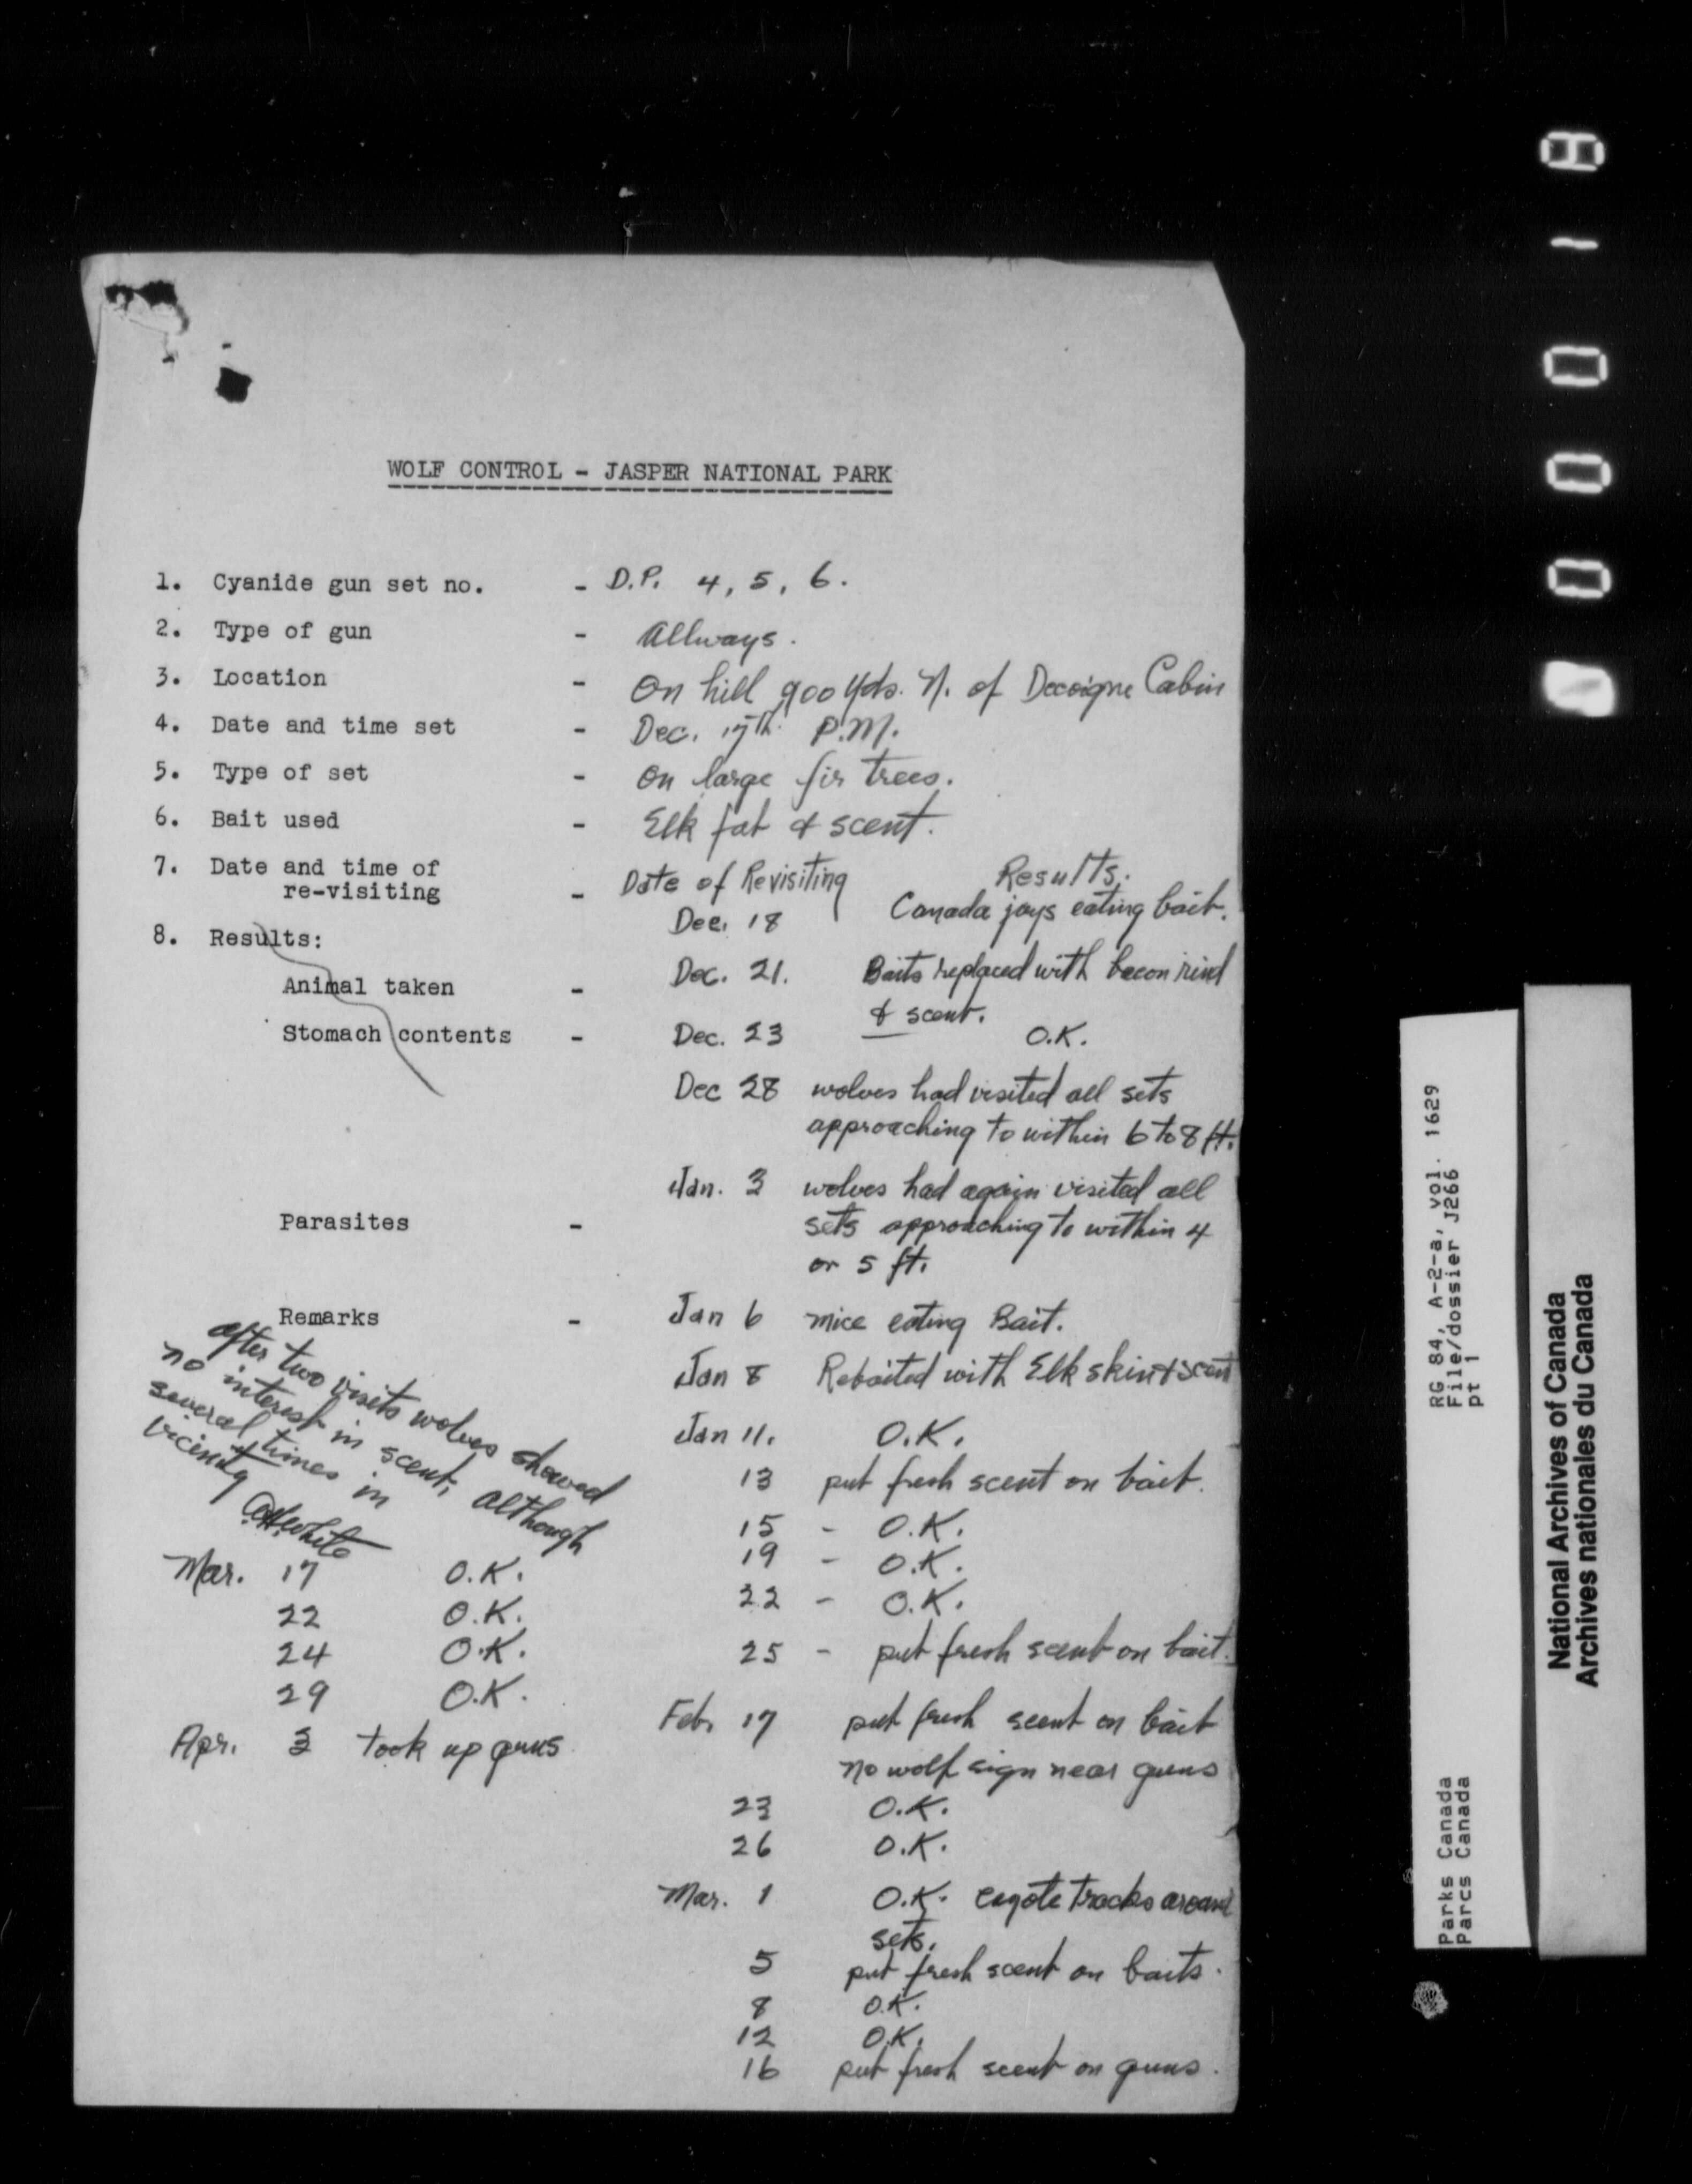 WOLF CONTROL - JASPER NATIONAL PARK
1. Cyanide gun set no. - D.P. 4, 5, 6.
2. Type of gun - Allways.
3. Location - On hill 900 yds. N. of Decoigne Cabin
4. Date and time set - Dec. 17th. P.M.
5. Type of set - On large fir trees.
6. Bait used - Elk fat & scent.
7. Date and time of
re-visiting - Date of Revisiting Results.
Dec. 18 Canada jays eating bait.
8. Results:
Dec. 21. Baits replaced with bacon rind
& scent.
Animal taken -
Stomach contents - Dec. 23 O.K.
Dec 28 wolves had visited all sets
approaching to within 6 to 8 ft.
Jan. 3 wolves had again visited all
Parasites - sets approaching to within 4
or 5 ft.
Remarks - Jan 6 mice eating Bait.
Jan 8 Rebaited with Elk skin & scent
Jan 11. O.K.
13 put fresh scent on bait.
15 - O.K.
19 - O.K.
22 - O.K.
25 - put fresh scent on bait.
Feb. 17 put fresh scent on bait
no wolf sign near guns
23 O.K.
26 O.K.
Mar. 1 O.K. coyote tracks around
sets.
5 put fresh scent on baits.
8 O.K.
12 O.K.
16 put fresh scent on guns.
after two visits wolves showed
no interest in scent, although
several times in
vicinity
White
Mar. 17 O.K.
22 O.K.
24 O.K.
29 O.K.
Apr. 3 took up guns
RG 84, A-2-a, vol. 1629
File/dossier J266
pt 1
Parks Canada
Parcs Canada
National Archives of Canada
Archives nationales du Canada